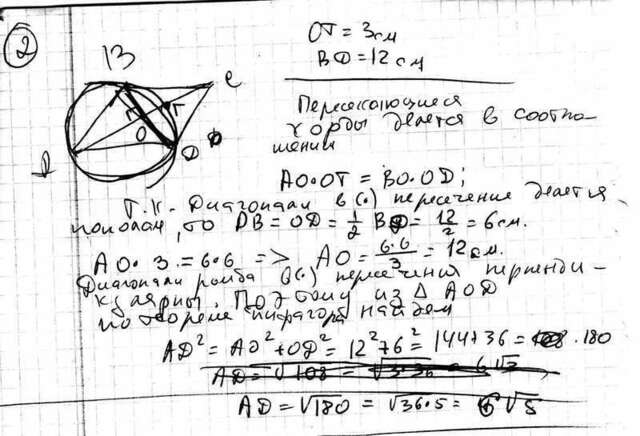 2
OT = 3 см
BD = 12 см
B
C
T
O
D
A
Пересекающиеся
хорды делятся в соотно-
шении
AO·OT = BO·OD;
Т.к. Диагонали в (·) пересечение делятся
пополам, то OB = OD = 1/2 BD = 12/2 = 6 см.
AO·3 = 6·6 => AO = 6·6/3 = 12 см.
Диагонали ромба в (·) пересечения перпенди-
кулярны. Поэтому из Δ AOD
по теореме пифагора найдем
AD² = AO² + OD² = 12² + 6² = 144 + 36 = 180
AD = √108 = √3·36 = 6√3
AD = √180 = √36·5 = 6√5